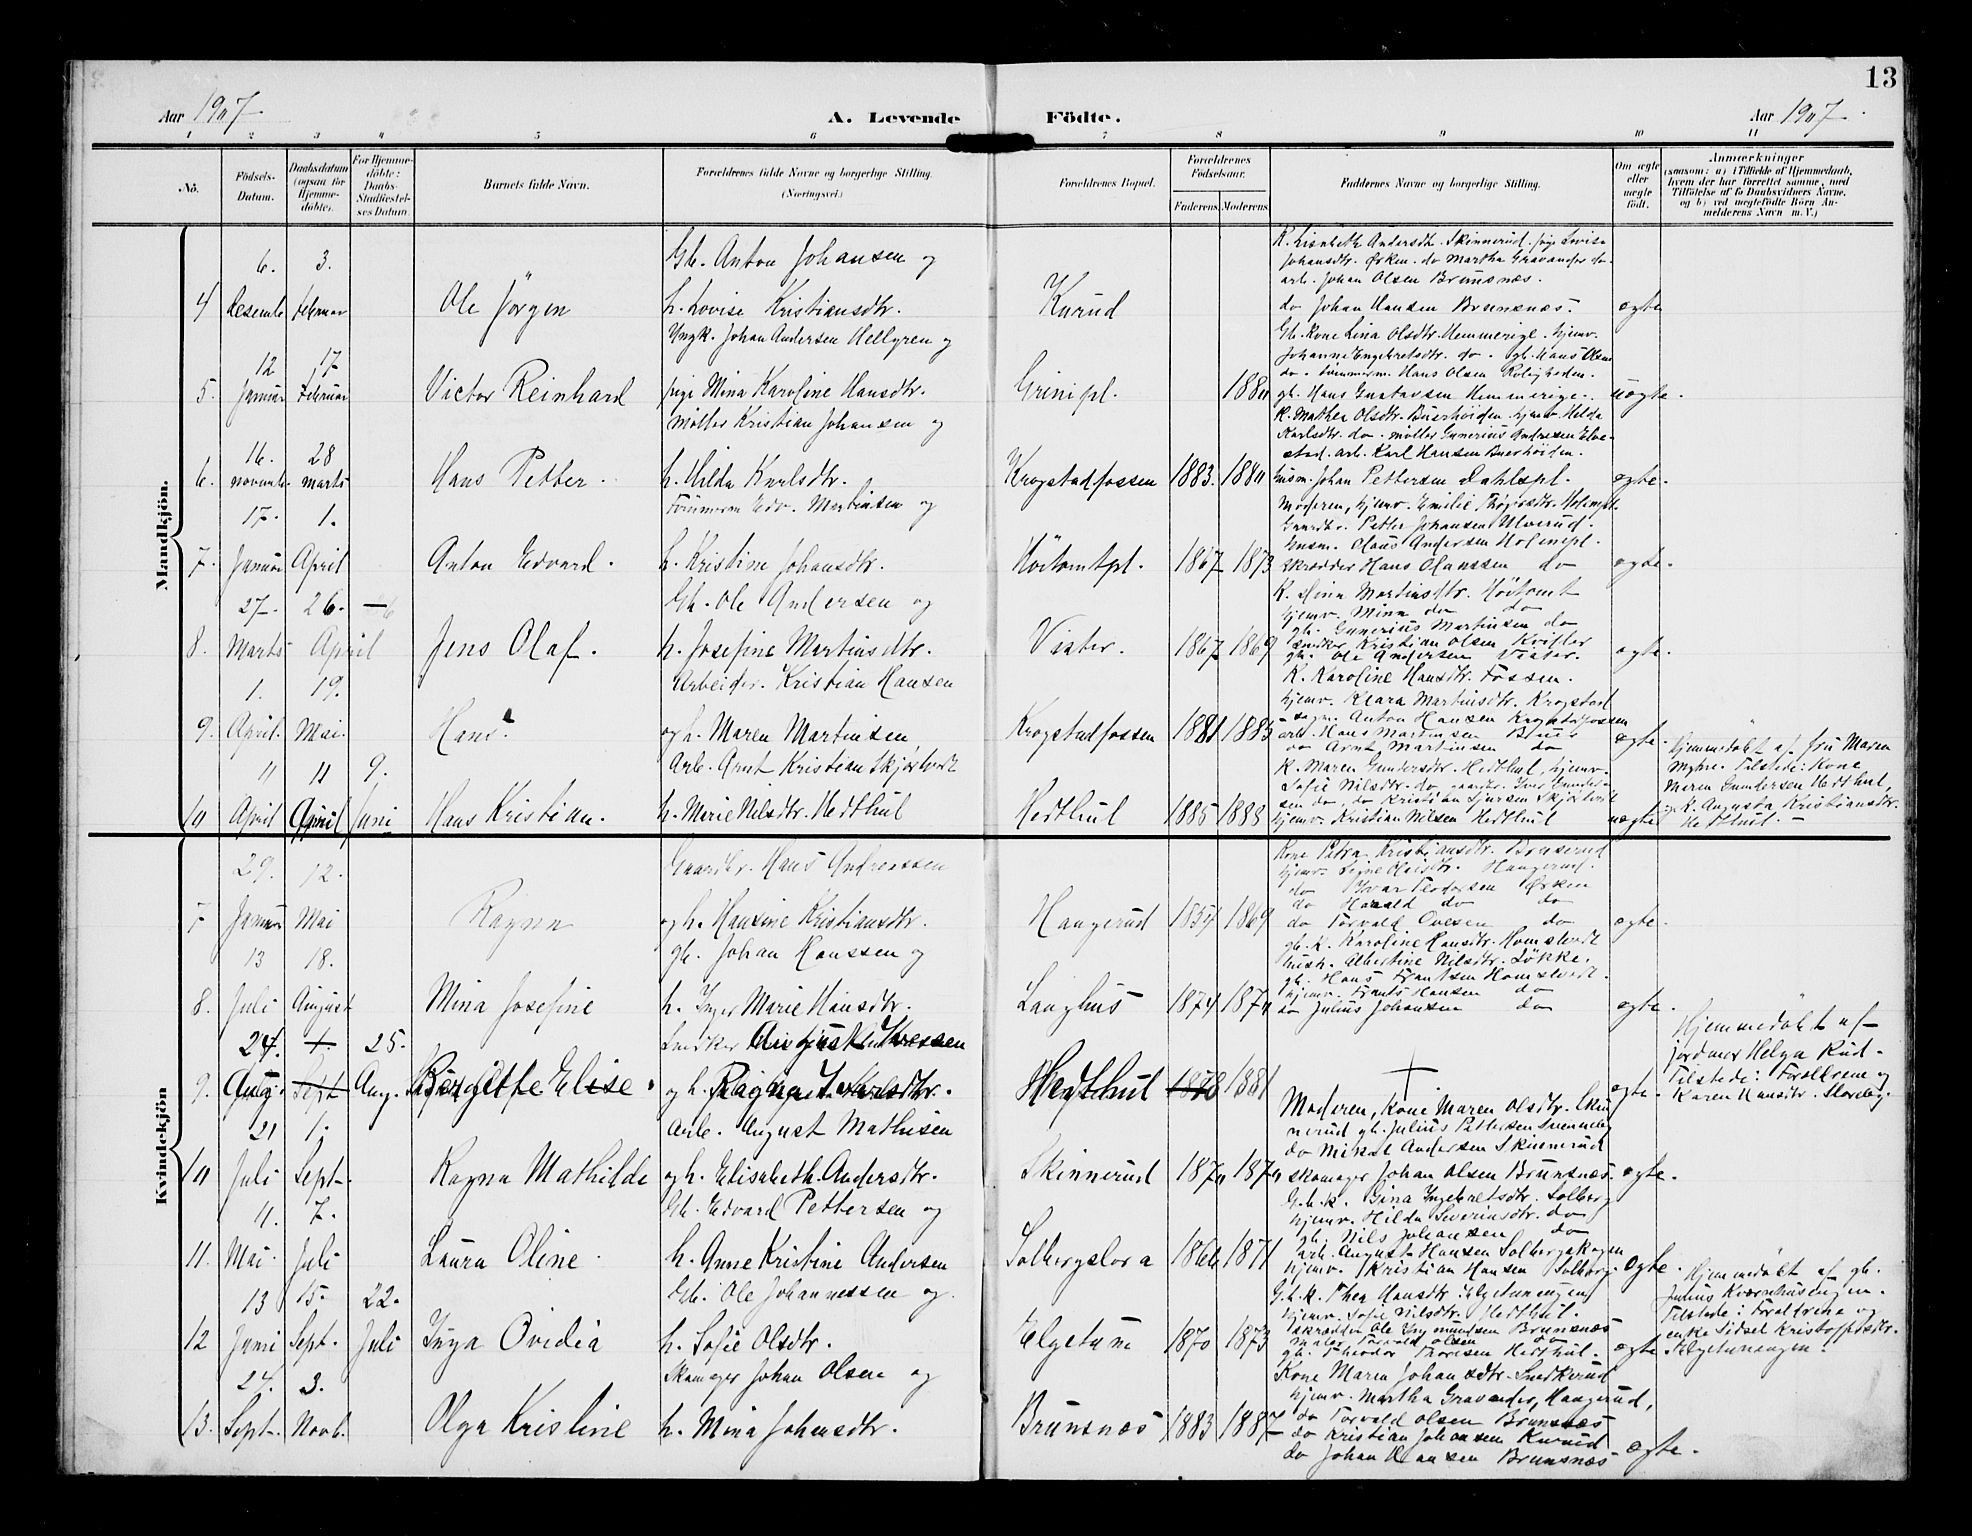 13
Aar 1907. A. Levende Födte. Aar 1907.
1 2 3 4 5 6 7 8 9 10 11
No. Födsels-Datum. Daabsdatum (ogsaa for Hjemmedöbte). For Hjemmedöbte: Daabs-Stadfæstelses Datum. Barnets fulde Navn. Forældrenes fulde Navne og borgerlige Stilling. (Næringsvei.) Forældrenes Bopæl. Forældrenes Födselsaar. Faderens. Moderens. Faddernes Navne og borgerlige Stilling. Om ægte eller uægte födt. Anmærkninger
(saasom: a) i Tilfælde af Hjemmedaab, hvem der har forrettet samme, med Tilföielse af to Daabsvidners Navne, og b) ved uegtefödte Börn Anmelderens Navn m. V.)
Mandkjön.
K. Lisabeth Andersdtr. Skinnerud. pige Lovise
6. 3. Gb. Anton Johansen og
Johansdtr. Örken. do Martha Gravander do
arb. Johan Olsen Brunsnæs.
4 Desemb. Februar Ole Jörgen h. Lovise Kristiansdtr. Knrud do Johan Hansen Brunsnæs. ægte
Ungk. Johan Andersen Hellgren og
Gb. Kone Lina Olsdtr. Hemmerige. hjemv.
12 17
Johanne Engebretsdtr. do. gb. Hans Olsen
do. Hans Olsen Roligheden.
5. Januar Februar Victor Reinhard pige Mina Karoline Hansdtr. Grinipl. 1880 gb. Hans Gustavsen Hemmerige. uægte.
möller Kristian Johansen og
K. Mathea Olsdtr. Buerhöiden. hjemv. Hilda
Karlsdtr. do. möller Gunerius Andresen Elvestad. arb. Karl Hansen Buerhöiden.
16. 28
6. novemb. marts Hans Petter. h. Hilda Karlsdtr. Krogstadfossen 1883. 1880 husm. Johan Pettersen Dahlspl. ægte.
17. 1. Tömmerm Edv. Martinsen og
Moderen, hjemv. Emilie
Gaardbr. Petter Johansen Ulverud.
husm. Claus Andersen Holmpl.
7. Januar April Anton Edvard. h. Kristine Johansdtr. Höitomtpl. 1867 1873 Skrædder Hans Olaussen do ægte.
27. 26. Gb. Ole Andersen og
K. Dina Martinsdtr. Höitomt
hjemv. Mina do do
gb. Gunerius Martinsen do
Snedker Kristian Olsen Kvister
8. Marts April Jens Olaf. h. Josefine Martinsdtr. Viater. 1867 1869 gb. Ole Andersen Viater. ægte.
1. 19. Arbeider. Kristian Hansen
K. Karoline Hansdtr. Fossen.
hjemv. Klara Martinsdtr. Krogstad
Anton Hansen Krogstadfossen
9. April. Mai. Hans. og h. Maren Martinsen Krogstadfossen 1881 1885 arb. Hans Martinsen
do Arnt Martinsen do ægte.
11 11 9. Arb. Arnt Kristian Skjörtvedt
K. Maren Gundersdtr. Hedthul, hjemv.
Sofie Nilsdtr. do, gaardbr. Iver Gundersen do, do Kristian Sjursen Skjörtvedt
10 April April Juni Hans Kristian. h. Marie Nilsdtr. Hedthul Hedthul 1885 1883 hjemv. Kristian Nilsen Hedthul uægte
Hjemmedöbt af fru Maren
Myhre. Tilstede: Kone
Maren Gundersen Hedthul,
K. Augusta Kristiansdtr.
Hedthul.
Kvindekjön
29. 12. Gaardbr. Hans Andreassen
Kone Petra Kristiansdtr. Bruserud
hjemv. Signe Olsdtr. Haugerud.
do Ivar Teodorsen Örken
do Harald do do
7 Januar Mai Ragna og h. Hansine Kristiansdtr. Haugerud 1854 1869 do Torvald Ovesen do ægte.
13 18. gb. Johan Hanssen og
gb. K. Karoline Hansdtr. Homstvedt
hush. Albertine Nilsdtr. Lökke.
gb. Hans Frantsen Homstvedt.
hjemv. Frants Hansen do
8. Juli August Mina Josefine h. Inger Marie Hansdtr. Langhus 1874 1870 do Julius Johansen do ægte.
24. 1. 25. Snedker August Andressen
9. Aug. Sept Aug. Birgitte Elise. og h. Ragna Karlsdtr. Hedthul 1878 1881 ægte.
Hjemmedöbt af
jordmor Helga Rud.
Tilstede: Forældrene og
Karen Hansdtr. Storeby.
21 1. Arb. August Mathisen
Moderen, Kone Maren Olsdtr. Skinnerud gb. Julius Pettersen Svenneby
do Mikal Andersen Skinnerud
10 Juli Sept. Ragna Mathilde og h. Elisabeth Andersdtr. Skinnerud 1870 1870 Skomager Johan Olsen Brunsnæs. ægte.
11. 7. Gb. Edvard Pettersen og
G.b.K. Gina Ingebretsdtr. Solberg
hjemv. Hilda Severinsdtr. do
gb. Nils Johansen do
arb. August Hansen Solbergskogen
11. Mai. Juli Laura Oline. h. Anne Kristine Andersen Solbergslora 1866 1871 hjemv. Kristian Hansen Solberg. ægte.
13 15. 22. Gb. Ole Johannessen og
G.b.K. Thea Hansdtr. Elgetunengen
hjemv. Sofie Nilsdtr. Hedthul.
skrædder Ole Ingmundsen Brunsnæs
maler Torvald Olsen do
12 Juni Sept. Juli Inga Ovidia h. Sofie Olsdtr. Elgetun 1870 1873 gb. Theodor Thoresen Hedthul. ægte.
Hjemmedöbt af gb.
Julius Kvernhusengen.
Tilstede: Forældrene og
enke Sidsel Kristoffersdtr.
Elgetunengen.
24. 3. Skomager Johan Olsen og
Kone Maren Johansdtr. Snedkerud
hjemv. Martha Gravander, Haugerud,
do Torvald Olsen Brunsnæs
do Kristian Johansen Knrud
13. Sept. Novb. Olga Kristine h. Mina Johansdtr. Brunsnæs 1883 1887 do Johan Hansen Brunsnæs ægte.